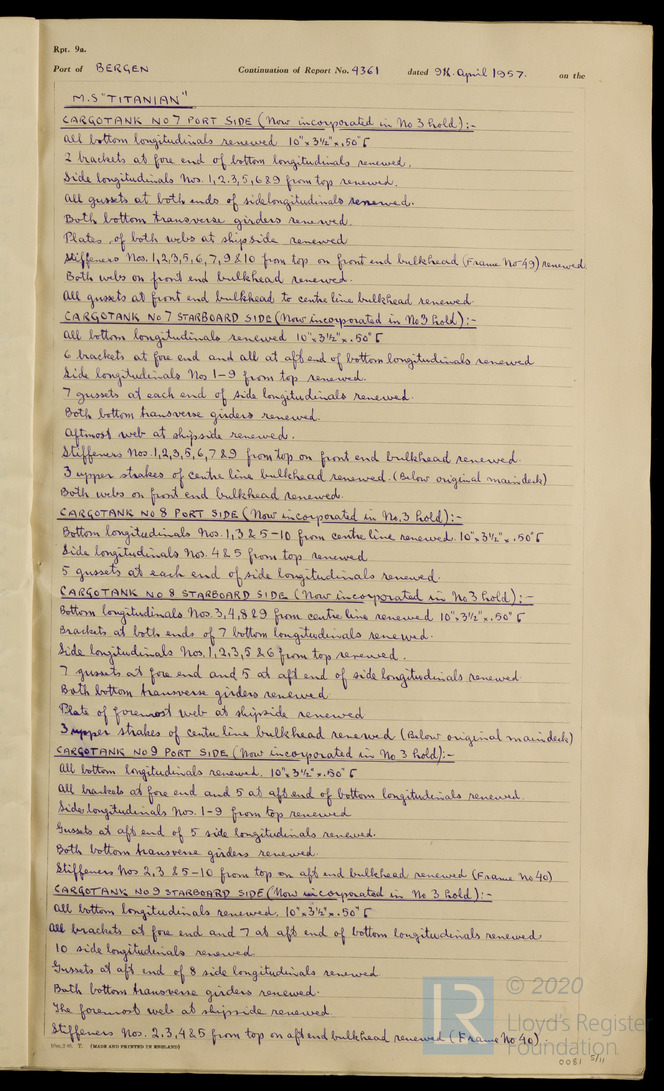 Rpt. 9a.
Port of BERGEN Continuation of Report No. 4361 dated 9th April 1957. on the
M.S "TITANIAN"
CARGOTANK NO 7 PORT SIDE (Now incorporated in No 3 hold):-
All bottom longitudinals renewed 10"x3½"x.50"
2 brackets at fore end of bottom longitudinals renewed.
Side longitudinals Nos. 1, 2, 3, 5, 6 & 9 from top renewed.
All gussets at both ends of sidelongitudinals renewed.
Both bottom transverse girders renewed.
Plates of both webs at shipside renewed
Stiffeners Nos. 1, 2, 3, 5, 6, 7, 9 & 10 from top on front end bulkhead (Frame No 49) renewed
Both webs on front end bulkhead renewed.
All gussets at front end bulkhead to centre line bulkhead renewed
CARGOTANK NO 7 STARBOARD SIDE (Now incorporated in No 3 hold):-
All bottom longitudinals renewed 10"x3½"x.50"
6 brackets at fore end and all at aft end of bottom longitudinals renewed
Side longitudinals Nos 1-9 from top renewed.
7 gussets at each end of side longitudinals renewed.
Both bottom transverse girders renewed.
Aftmost web at shipside renewed.
Stiffeners Nos. 1, 2, 3, 5, 6, 7, 8 & 9 from top on front end bulkhead renewed.
3 upper strakes of centre line bulkhead renewed. (Below original maindeck)
Both webs on front end bulkhead renewed.
CARGOTANK NO 8 PORT SIDE (Now incorporated in No. 3 hold):-
Bottom longitudinals Nos. 1, 3 & 5-10 from centre line renewed. 10"x3½"x.50"
Side longitudinals Nos. 4 & 5 from top renewed
5 gussets at each end of side longitudinals renewed.
CARGOTANK NO 8 STARBOARD SIDE (Now incorporated in No 3 hold):-
Bottom longitudinals Nos. 3, 4, 8 & 9 from centre line renewed 10"x3½"x.50"
Brackets at both ends of 7 bottom longitudinals renewed.
Side longitudinals Nos. 1, 2, 3, 5 & 6 from top renewed.
7 gussets at fore end and 5 at aft end of side longitudinals renewed
Both bottom transverse girders renewed
Plate of foremost web at shipside renewed
3 upper strakes of centre line bulkhead renewed (Below original maindeck)
CARGOTANK NO 9 PORT SIDE (Now incorporated in No 3 hold):-
All bottom longitudinals renewed. 10"x3½"x.50"
All brackets at fore end and 5 at aft end of bottom longitudinals renewed.
Side longitudinals Nos. 1-9 from top renewed
Gussets at aft end of 5 side longitudinals renewed.
Both bottom transverse girders renewed.
Stiffeners Nos 2, 3 & 5-10 from top on aft end bulkhead renewed (Frame No 40)
CARGOTANK NO 9 STARBOARD SIDE (Now incorporated in No 3 hold):-
All bottom longitudinals renewed. 10"x3½"x.50"
All brackets at fore end and 7 at aft end of bottom longitudinals renewed
10 side longitudinals renewed
Gussets at aft end of 8 side longitudinals renewed
Both bottom transverse girders renewed.
The foremost web at shipside renewed.
Stiffeners Nos. 2, 3, 4 & 5 from top on aft end bulkhead renewed (Frame No 40)
(MADE AND PRINTED IN ENGLAND)
© 2020
LR
Lloyd's Register
Foundation
0081 5/11